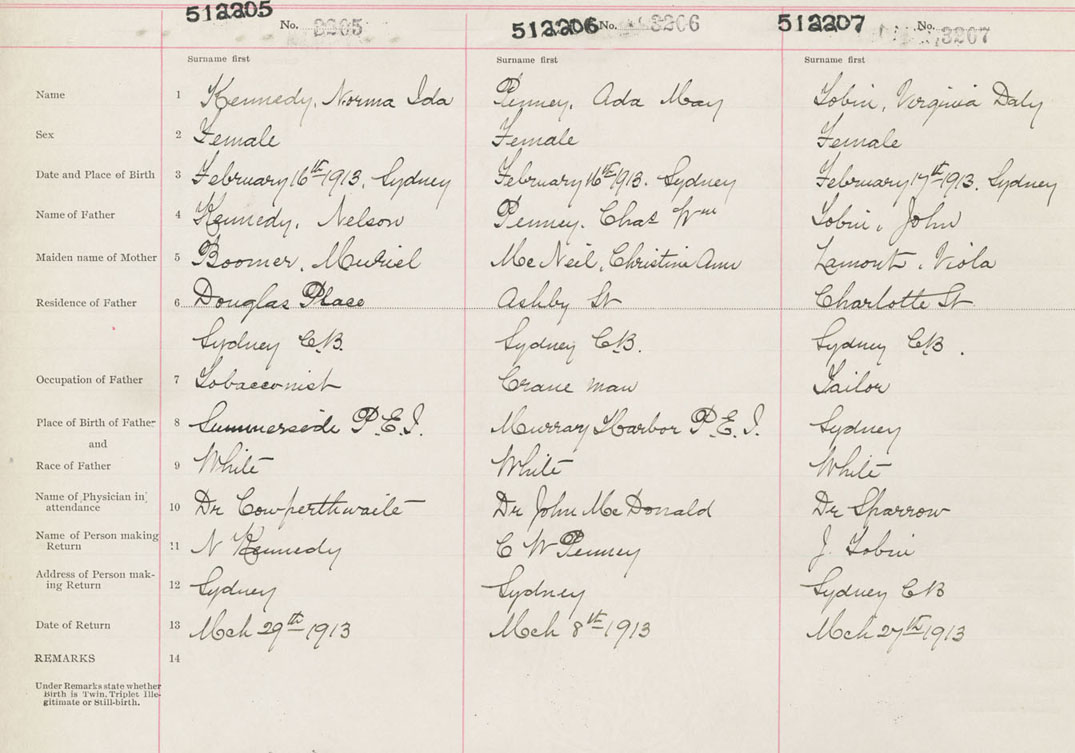 512205 No. 3205 512206 No. 3206 512207 No. 3207
Surname first Surname first Surname first
Name 1 Kennedy, Norma Ida Penney, Ada May Tobin, Virginia Daly
Sex 2 Female Female Female
Date and Place of Birth 3 February 16th 1913, Sydney February 16th 1913. Sydney February 17th 1913. Sydney
Name of Father 4 Kennedy, Nelson Penney. Chas Wm Tobin, John
Maiden name of Mother 5 Boomer, Muriel McNeil, Christine Ann Lamont, Viola
Residence of Father 6 Douglas Place Ashby St Charlotte St
Sydney C.B. Sydney C.B. Sydney C.B.
Occupation of Father 7 Tobacconist Crane man Tailor
Place of Birth of Father 8 Summerside P.E.I. Murray Harbor P.E.I. Sydney
and
Race of Father 9 White White White
Name of Physician in
attendance 10 Dr Cowperthwaite Dr John McDonald Dr Sparrow
Name of Person making
Return 11 N Kennedy C W Penney J. Tobin
Address of Person mak-
ing Return 12 Sydney Sydney Sydney CB
Date of Return 13 Mch 29th 1913 Mch 8th 1913 Mch 27th 1913
REMARKS 14
Under Remarks state whether
Birth is Twin, Triplet, Ille-
gitimate or Still-birth.